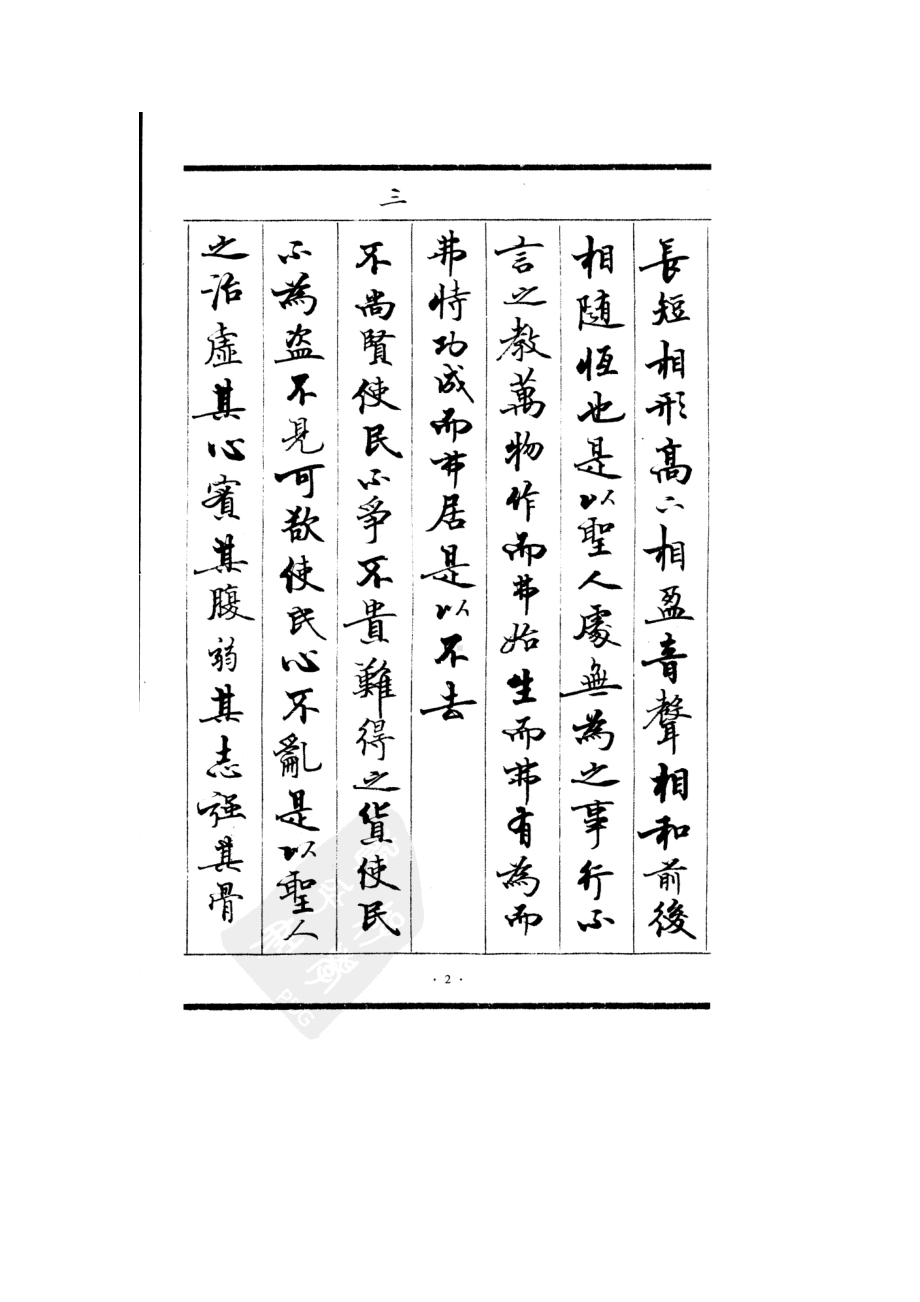 三
長短相形高下相盈音聲相和前後
相随恆也是以聖人處無為之事行不
言之教萬物作而弗始生而弗有為而
弗恃功成而弗居是以不去
不尚賢使民不爭不貴難得之货使民
不為盗不見可欲使民心不亂是以聖人
之治虛其心實其腹弱其志强其骨
· 2 ·